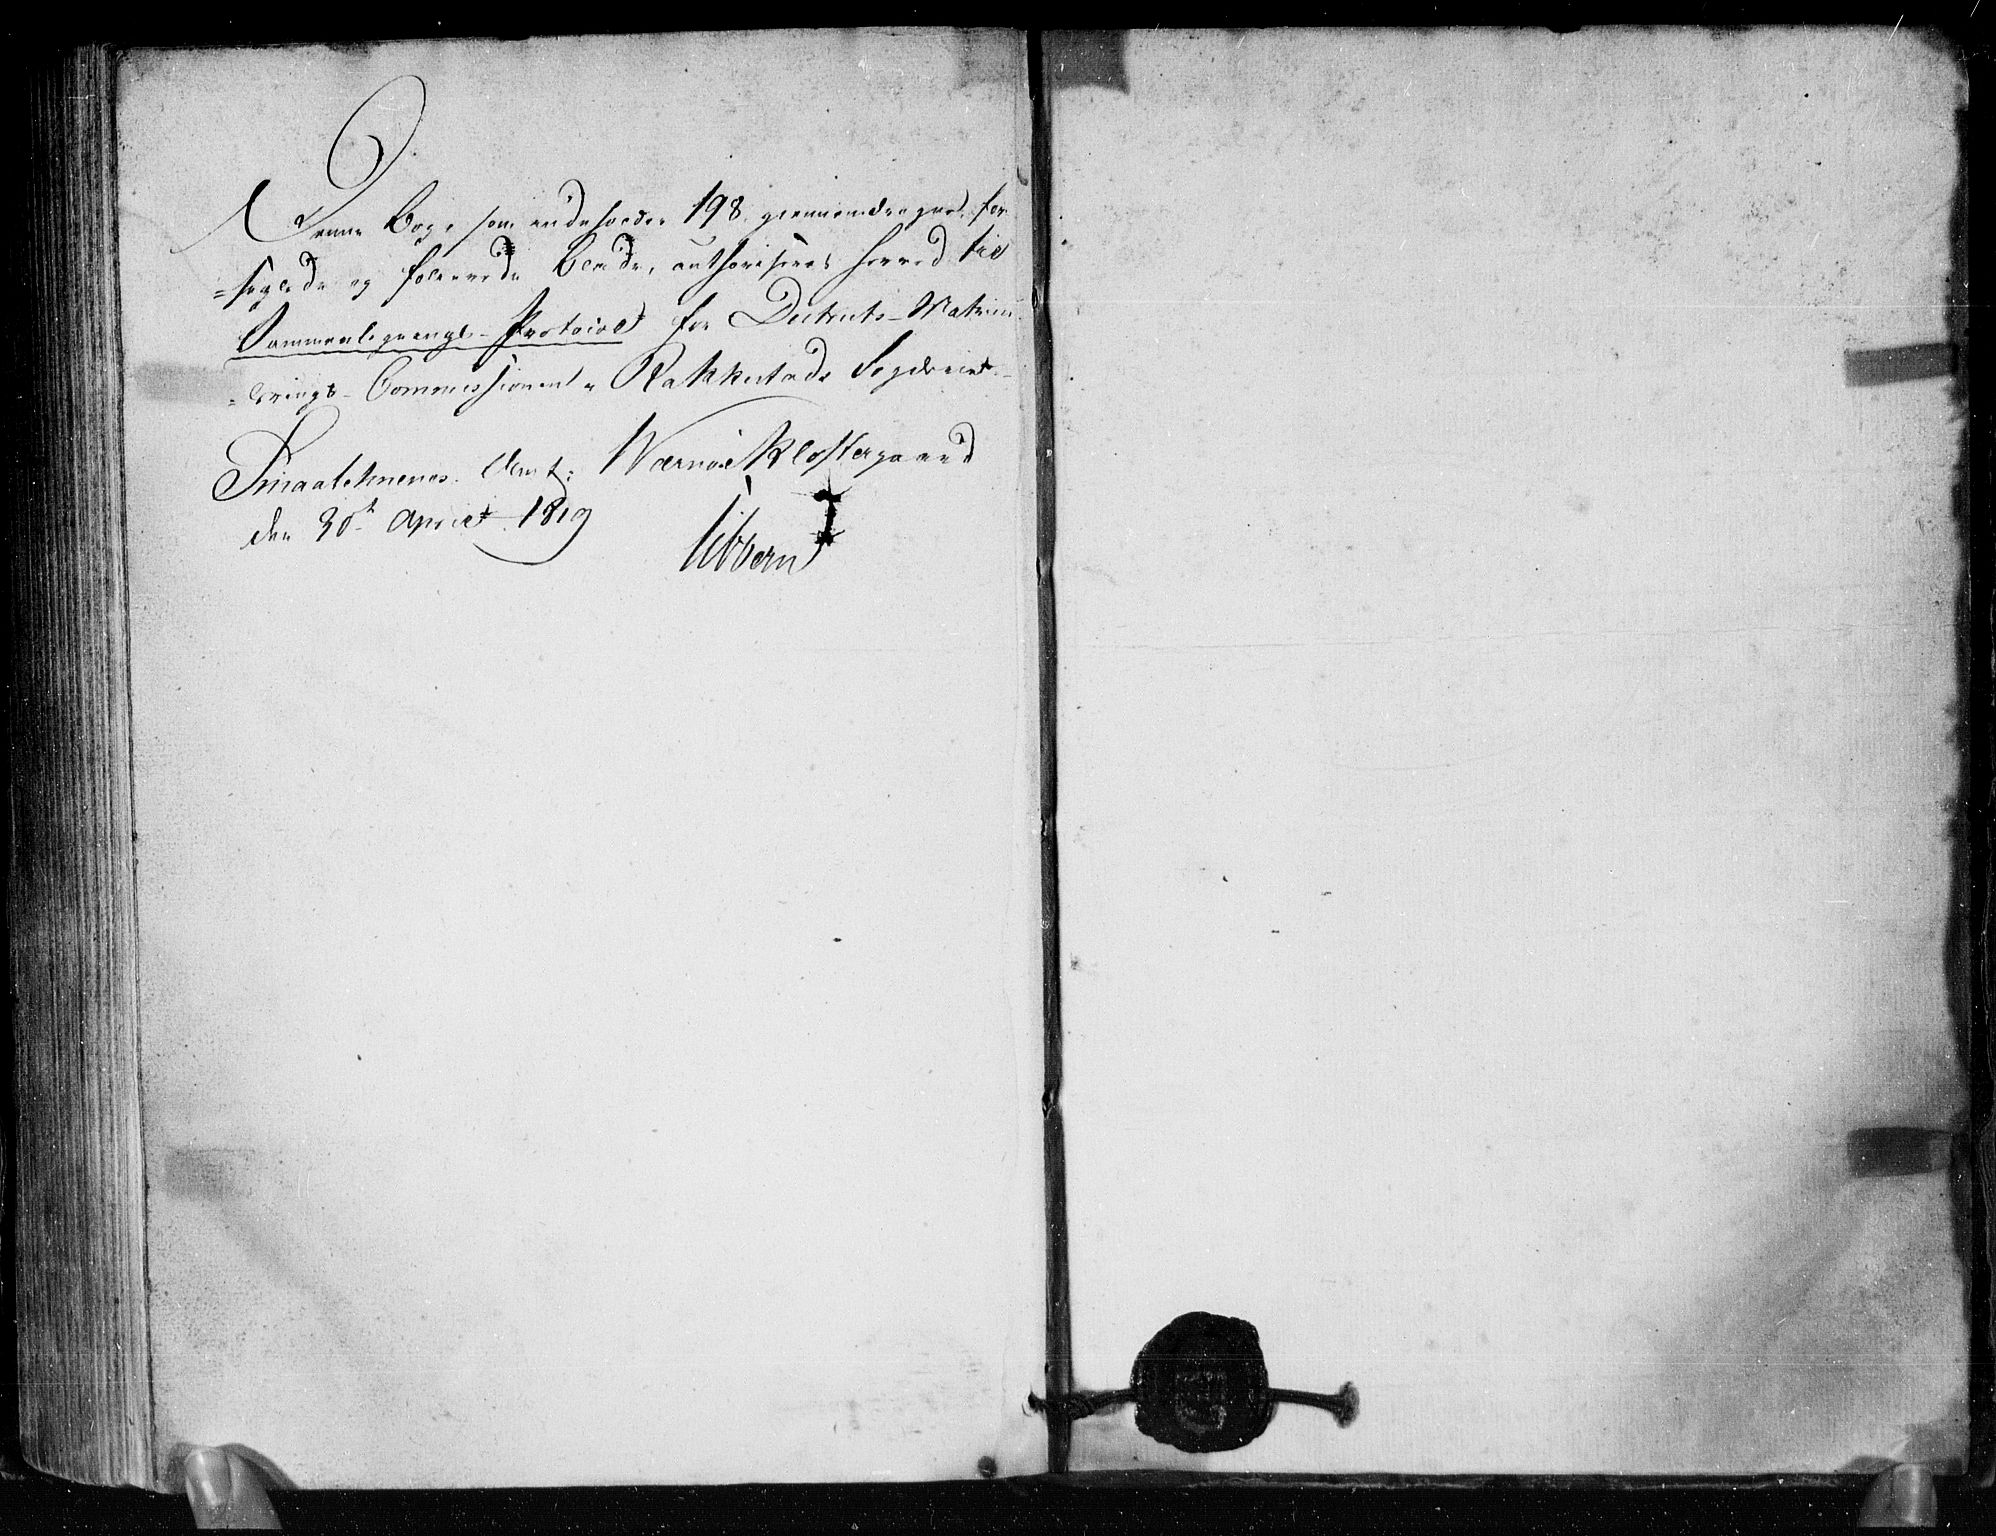 Denne Bog, som indeholder 198 giennemdragne, for¬
=seglede og folierede Blade, authoriseres herved til
Sammenlignings-Protocol for Districts-Matricu¬
=lerings-Commissionen i Rakkestads Fogderie.-
Smaalehnenes Amt: Wærnøe Klostergaard
den 30te April 1819
Sibbern